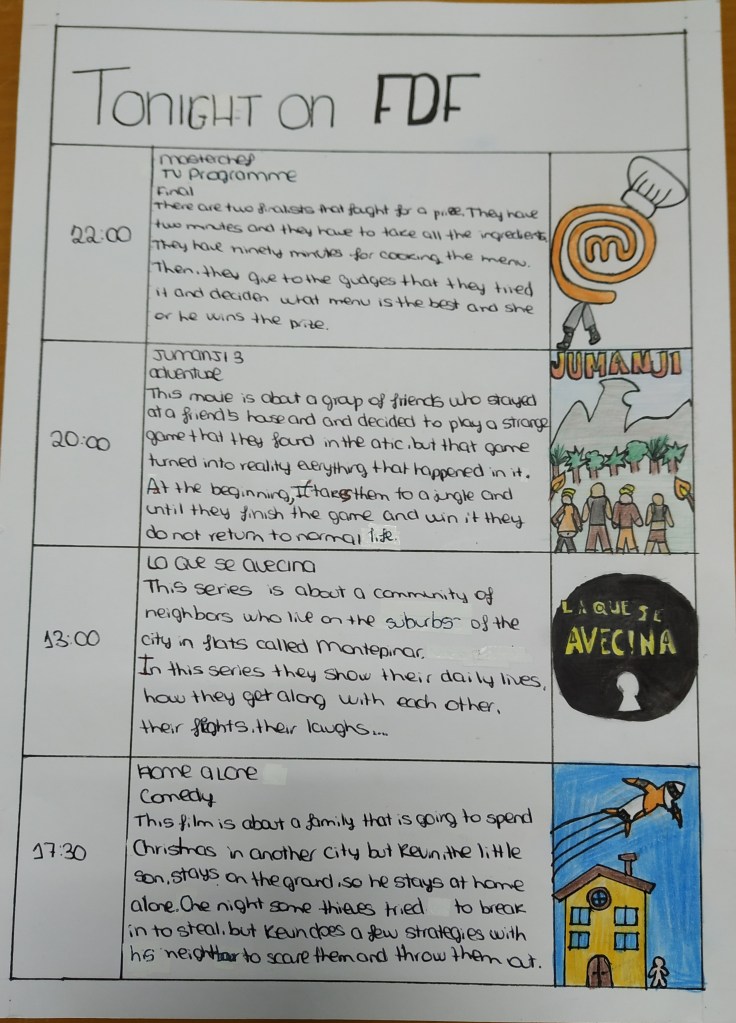 TONIGHT ON FDF
22:00
Masterchef
TV Programme
Final
There are two finalists that fought for a prize. They have
two minutes and they have to take all the ingredients.
They have ninety minutes for cooking the menu.
Then, they give to the gudges that they tired
it and deciden what menu is the best and she
or he wins the prize.
20:00
Jumanji 3
adventure
This movie is about a group of friends who stayed
at a friend's house and and decided to play a strange
game that they found in the atic, but that game
turned into reality everything that happened in it.
At the beginning, It takes them to a jungle and
until they finish the game and win it they
do not return to normal life.
JUMANJI
13:00
Lo que se avecina
This series is about a community of
neighbors who live on the suburbs of the
city in flats called Montepinar.
In this series they show their daily lives,
how they get along with each other,
their fights, their laughs....
LA QUE SE
AVECINA
17:30
Home alone
Comedy
This film is about a family that is going to spend
Christmas in another city but Kevin, the little
son, stays on the grand, so he stays at home
alone. One night some thieves tried to break
in to steal, but Kevin does a few strategies with
his neighbour to scare them and throw them out.